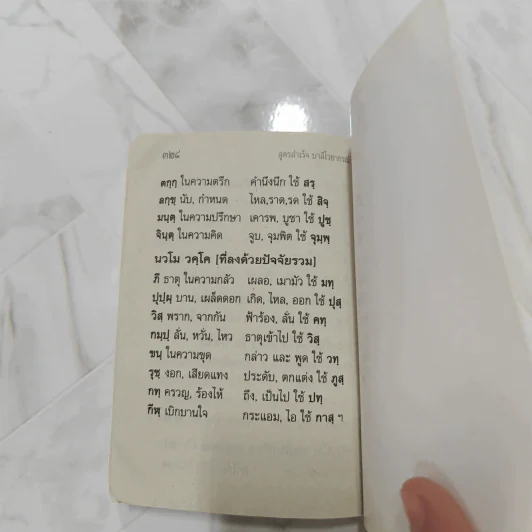 ๓๒๔ สูตรสำเร็จ บาลีไวยากรณ์
ตกฺก ในความตรึก คำนึงนึก ใช้ สรฺ
ลกฺข นับ, กำหนด ไหล,ราด,รด ใช้ สิจฺ
มนฺต ในความปรึกษา เคารพ, บูชา ใช้ ปูชฺ
จินฺต ในความคิด จูบ, จุมพิต ใช้ จุมฺพ
นวโม วคฺโค [ที่ลงด้วยปัจจัยรวม]
ภี ธาตุ ในความกลัว เผลอ, เมามัว ใช้ มทฺ
ปุปฺผ บาน, เผล็ดดอก เกิด, ไหล, ออก ใช้ ปสุ
วิสฺ พราก, จากกัน ฟ้าร้อง, ลั่น ใช้ คทฺ
กมฺปฺ ลั่น, หวั่น, ไหว ธาตุเข้าไป ใช้ วิสฺ
ขนฺ ในความขุด กล่าว และ พูด ใช้ วทฺ
รุชฺ งอก, เสียดแทง ประดับ, ตกแต่ง ใช้ ภูสฺ
กทฺ ครวญ, ร้องไห้ ถึง, เป็นไป ใช้ ปทฺ
กีฬฺ เบิกบานใจ กระแอม, ไอ ใช้ กาสฺ ฯ